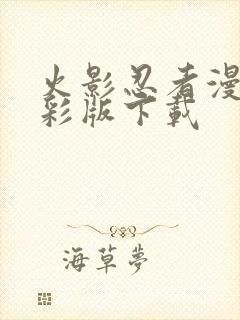 火影忍者漫
彩版下載
海草夢